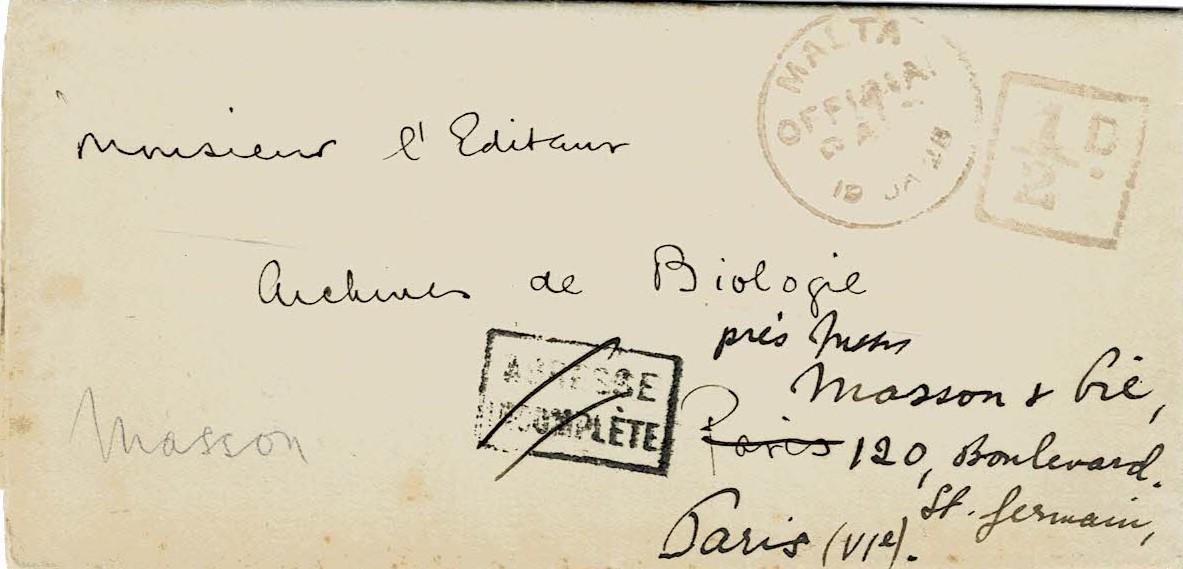 MALTA
OFFICIAL
PAI
18 JA 28
1/2 D.
Monsieur l'Editeur
Archives de Biologie
près Messrs
Masson & Cie,
ADRESSE
INCOMPLÈTE
Masson
Paris 120, Boulevard.
St. Germain,
Paris (VIe).